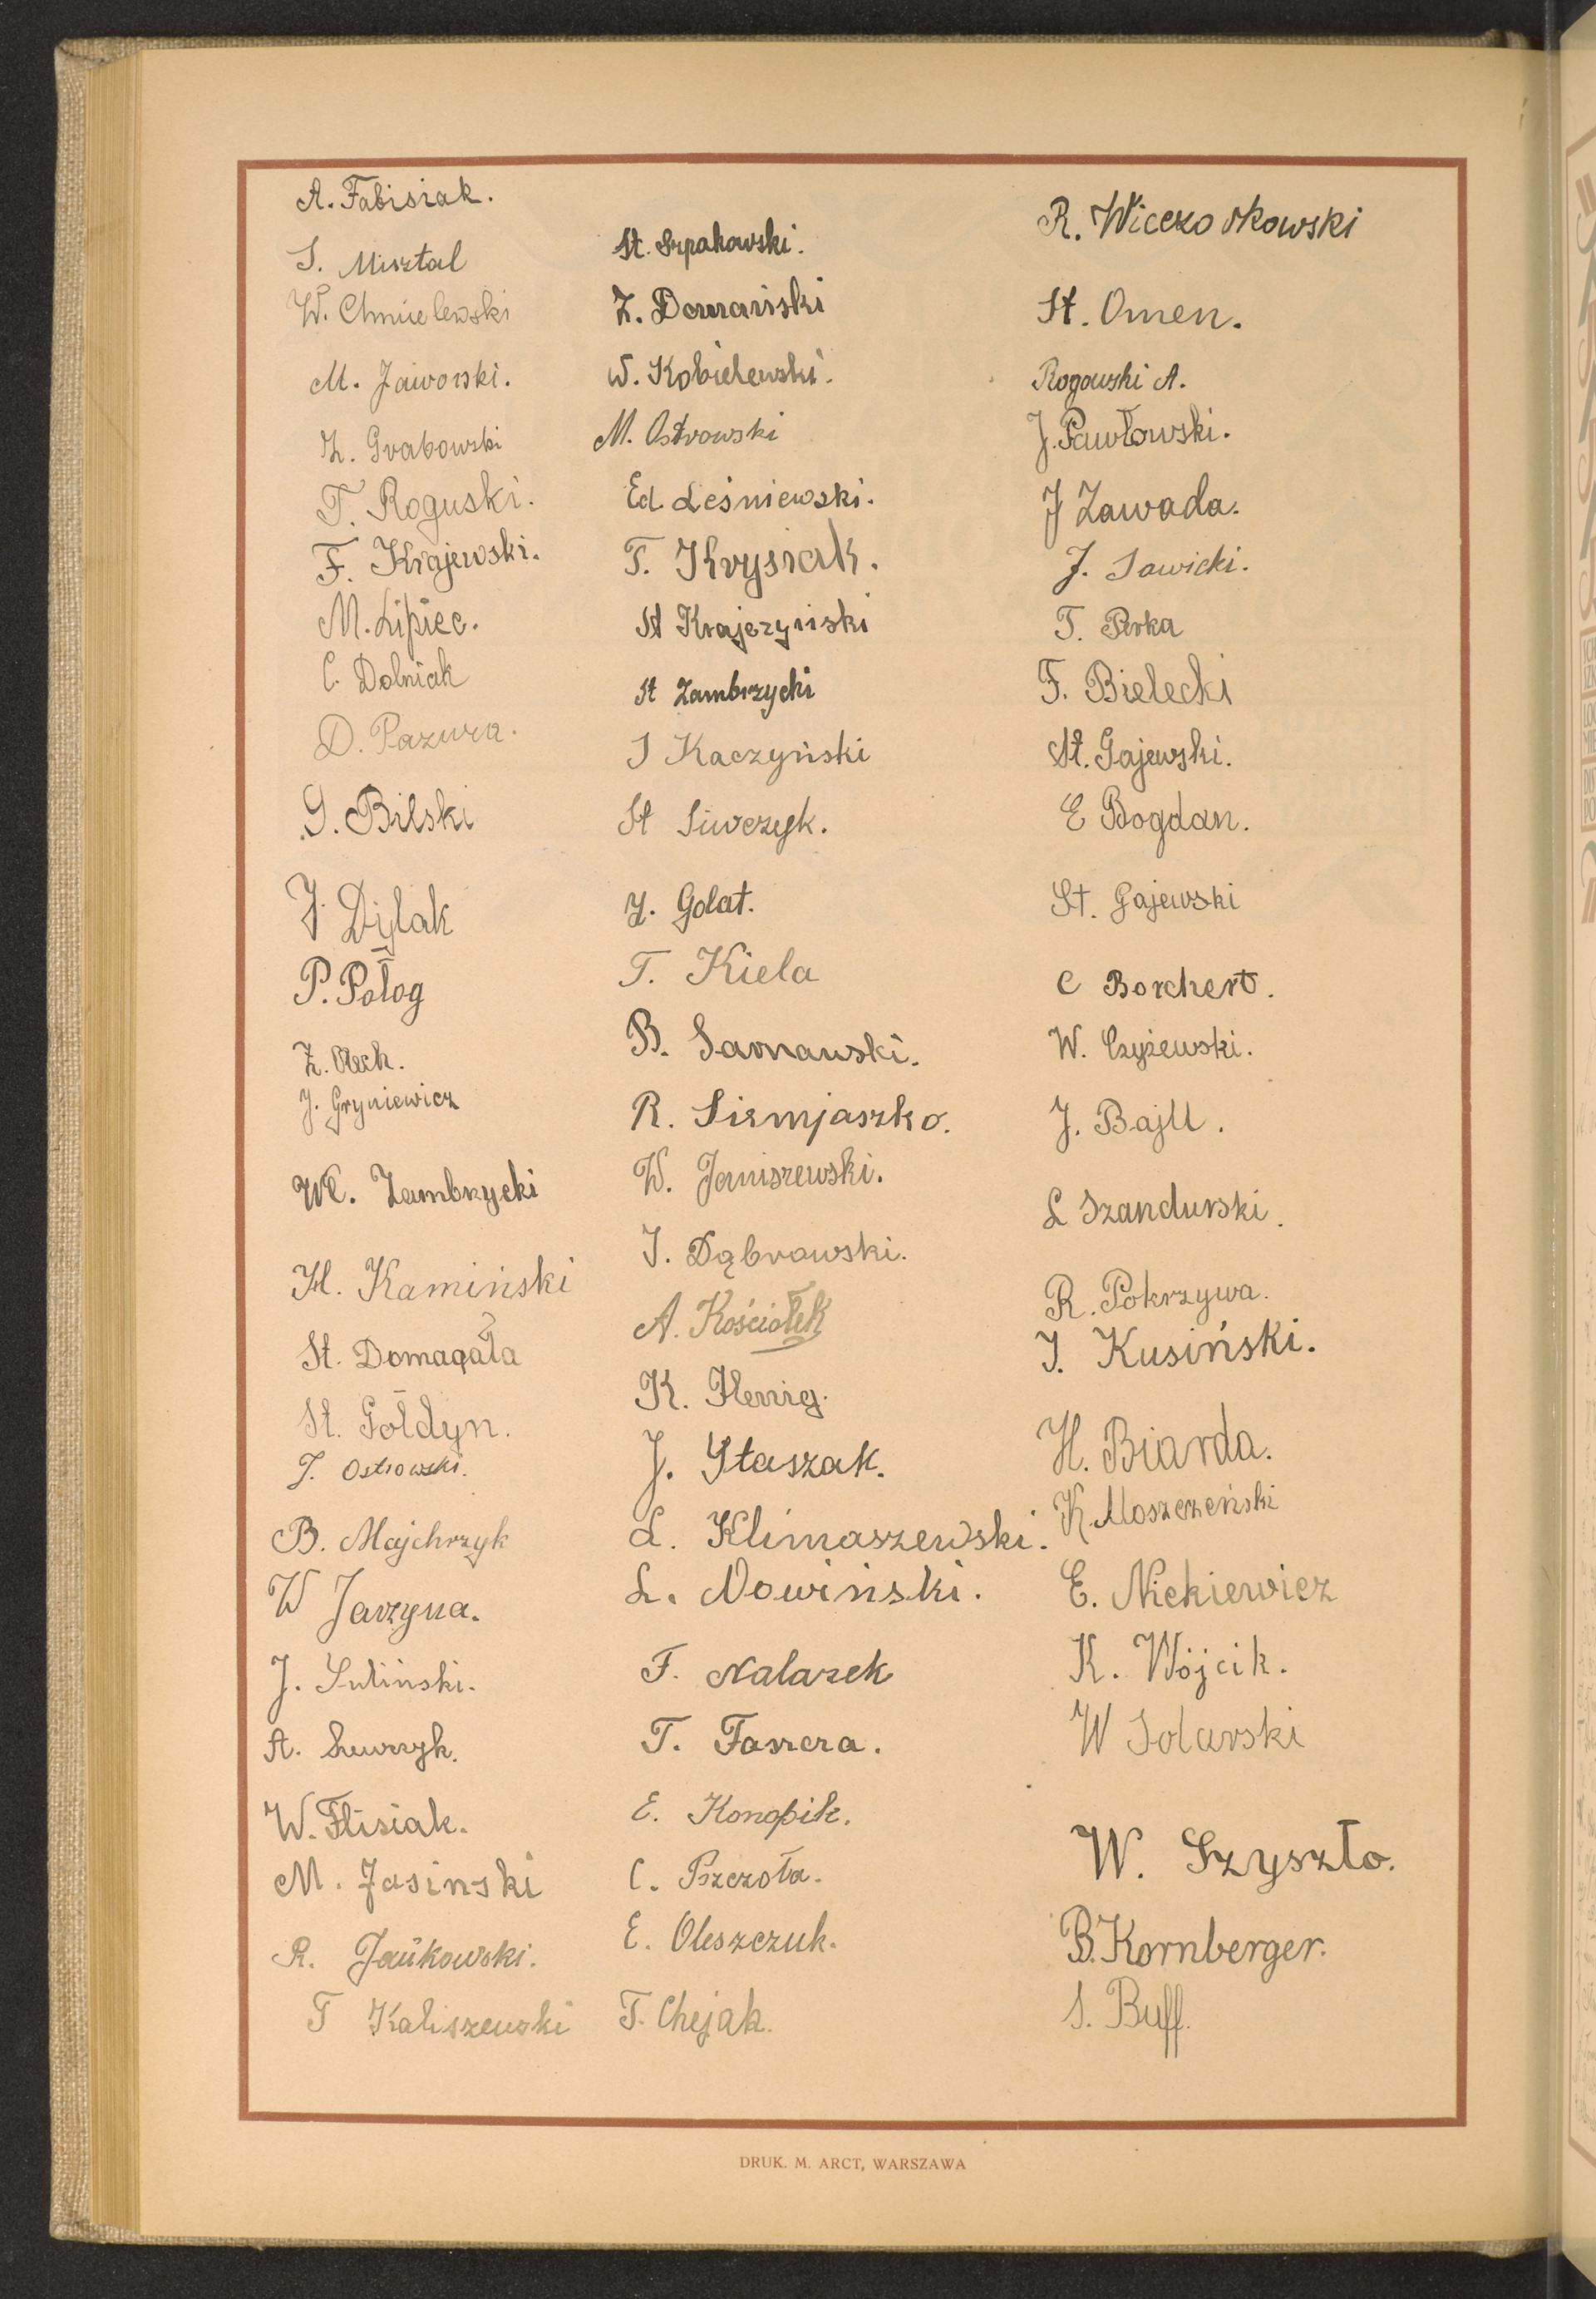 A. Fabisiak.
S. Misztal
W. Chmielewski
M. Jaworski.
Z. Grabowski
T. Roguski.
F. Krajewski.
M. Lipiec.
C. Dolniak
D. Pazura.
G. Bilski
J. Dylak
P. Połog
Z. Olech.
J. Gryniewicz
Wł. Zambrzycki
H. Kamiński
St. Domagała
St. Gołdyn.
J. Ostrowski.
B. Majchrzyk
W Jarzyna.
J. Suliński.
A.
W. Flisiak.
M. Jasinski
R. Jańkowski.
T Kaliszewski
St. Szpakowski.
Z. Domański
W. Kobielewski.
M. Ostrowski
Ed. Leśniewski.
T. Krysiak.
St Krajczyński
St Zambrzycki
J Kaczyński
St Siwczyk.
J. Golat.
T. Kiela
B. Sarnawski.
R. Siemjaszko.
W. Janiszewski.
J. Dąbrowski.
A. Kościołek
K. Henig.
J. Staszak.
L. Klimaszewski.
L. Nowiński.
F. Nalazek
T. Faszcza.
E. Konopik.
C. Pszczoła.
E. Oleszczuk.
T. Chejak.
R. Wieczorkowski
St. Omen.
Rogowski A.
J. Pawłowski.
J Zawada.
J. Sawicki.
T. Perka
F. Bielecki
St. Gajewski.
E Bogdan.
St. Gajewski
C Borchert.
W. Czyżewski.
J. Bajll.
L Szandurski.
R. Pokrzywa.
J. Kusiński.
H. Biarda.
K. Moszczeński
E. Nickiewicz
K. Wójcik.
W Solarski
W. Szyszło.
B. Kornberger.
S. Buff.
DRUK. M. ARCT, WARSZAWA